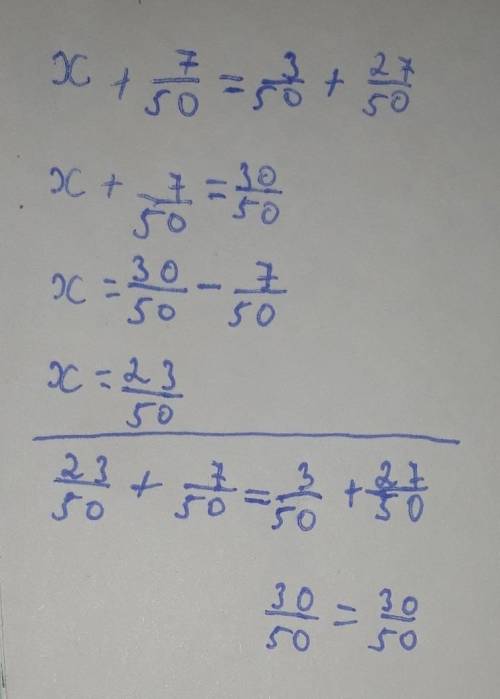 x + 7/50 = 3/50 + 27/50
x + 7/50 = 30/50
x = 30/50 - 7/50
x = 23/50
23/50 + 7/50 = 3/50 + 27/50
30/50 = 30/50